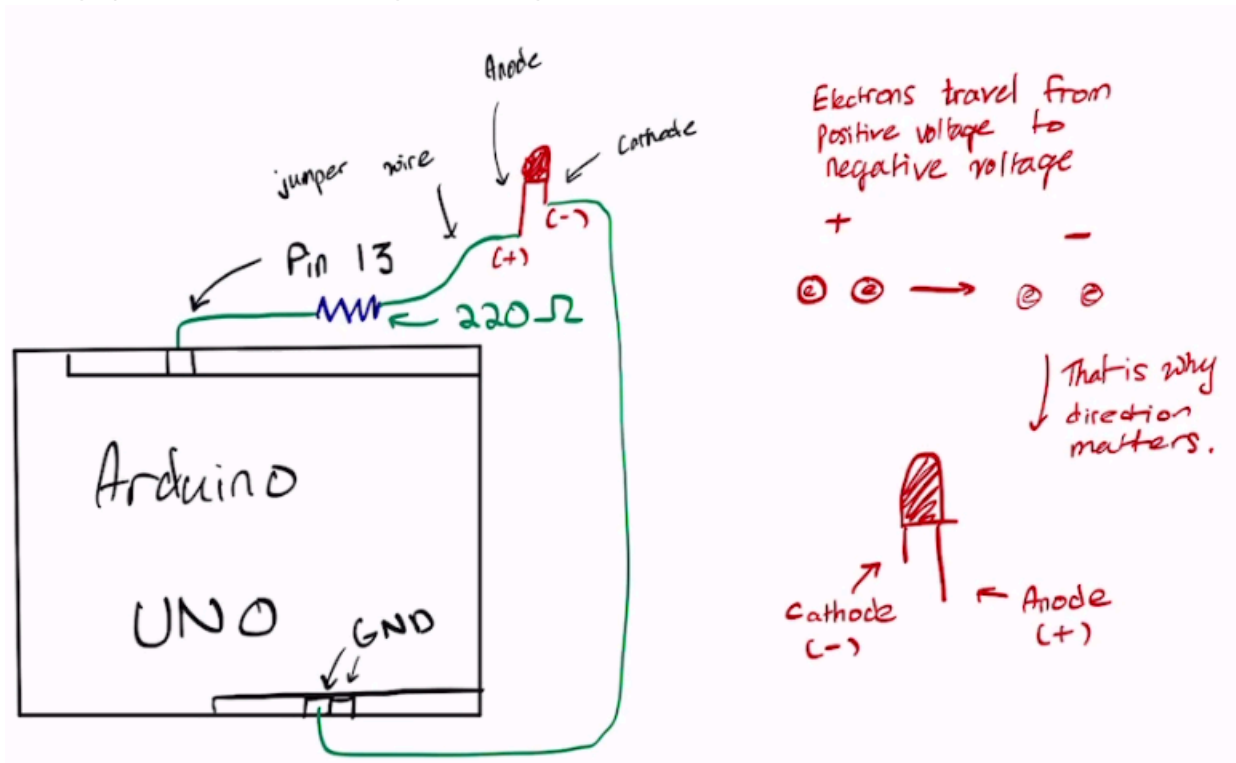 Anode
Cathode
jumper wire
(-)
(+)
Pin 13
220Ω
Arduino
UNO
GND
Electrons travel from
positive voltage to
negative voltage
+
-
e e → e e
That is why
direction
matters.
Cathode
(-)
Anode
(+)